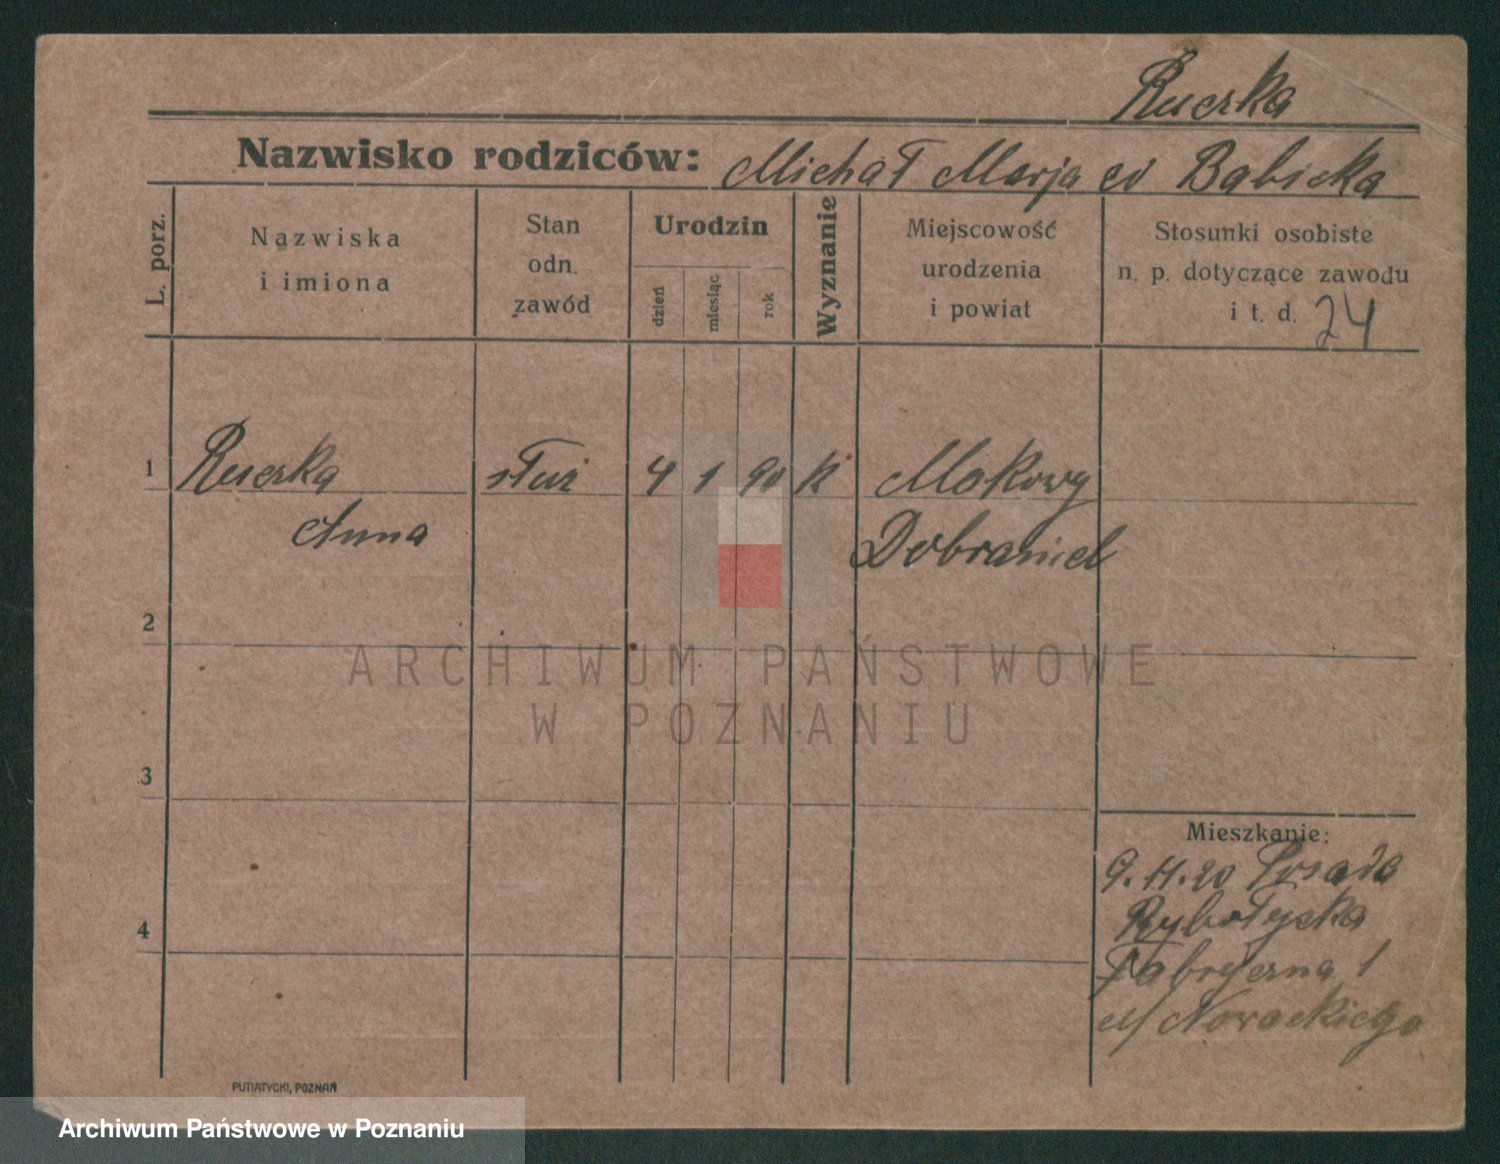 Ruczka
Nazwisko rodziców: Michał Marja Bąbicka
L. porz.
Nazwiska
i imiona
Stan
odn.
zawód
Urodzin
dzień
miesiąc
rok
Wyznanie
Miejscowość
urodzenia
i powiat
Stosunki osobiste
n. p. dotyczące zawodu
i t. d. 24
1 Ruczka służ 4 1 90 k Makowy
Anna Dobramiel
2
3
4
ARCHIWUM PAŃSTWOWE
W POZNANIU
Mieszkanie:
9.11.20 Posada
Rybotycka
Fabryczna 1
u/ Nowackiego
PUTIATYCKI, POZNAŃ
Archiwum Państwowe w Poznaniu